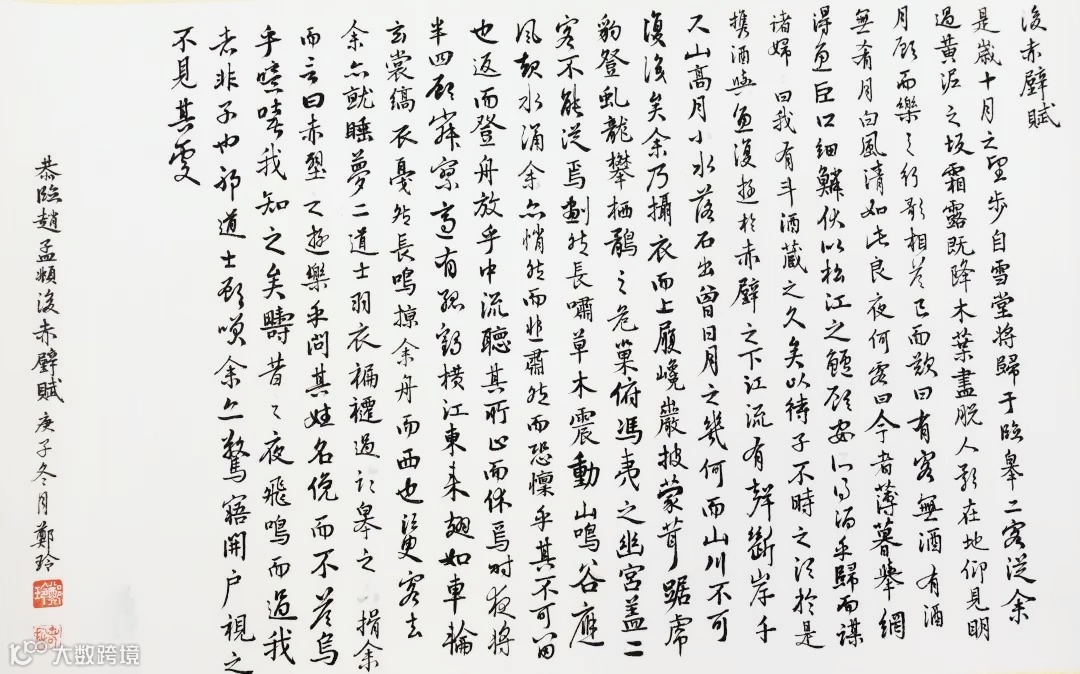 後赤壁賦
是歲十月之望步自雪堂將歸于臨皋二客從余
過黃泥之坂霜露既降木葉盡脫人影在地仰見明
月顧而樂之行歌相答已而歎曰有客無酒有酒
無肴月白風清如此良夜何客曰今者薄暮舉網
得魚巨口細鱗狀似松江之鱸顧安所得酒乎歸而謀
諸婦婦曰我有斗酒藏之久矣以待子不時之須於是
攜酒與魚復遊於赤壁之下江流有聲斷岸千
尺山高月小水落石出曾日月之幾何而山川不可
復識矣余乃攝衣而上履巉巖披蒙茸踞虎
豹登虬龍攀栖鶻之危巢俯馮夷之幽宮蓋二
客不能從焉劃然長嘯草木震動山鳴谷應
風起水涌余亦悄然而悲肅然而恐懍乎其不可留
也返而登舟放乎中流聽其所止而休焉時夜將
半四顧寂寥適有孤鶴橫江東來翅如車輪
玄裳縞衣戛然長鳴掠余舟而西也須臾客去
余亦就睡夢二道士羽衣褊褼過臨皋之下揖余
而言曰赤壁之遊樂乎問其姓名俛而不答烏
乎噫嘻我知之矣疇昔之夜飛鳴而過我
者非子也邪道士顧笑余亦驚寤開戶視之
不見其處
恭臨趙孟頫後赤壁賦 庚子冬月鄭玲
大数跨境